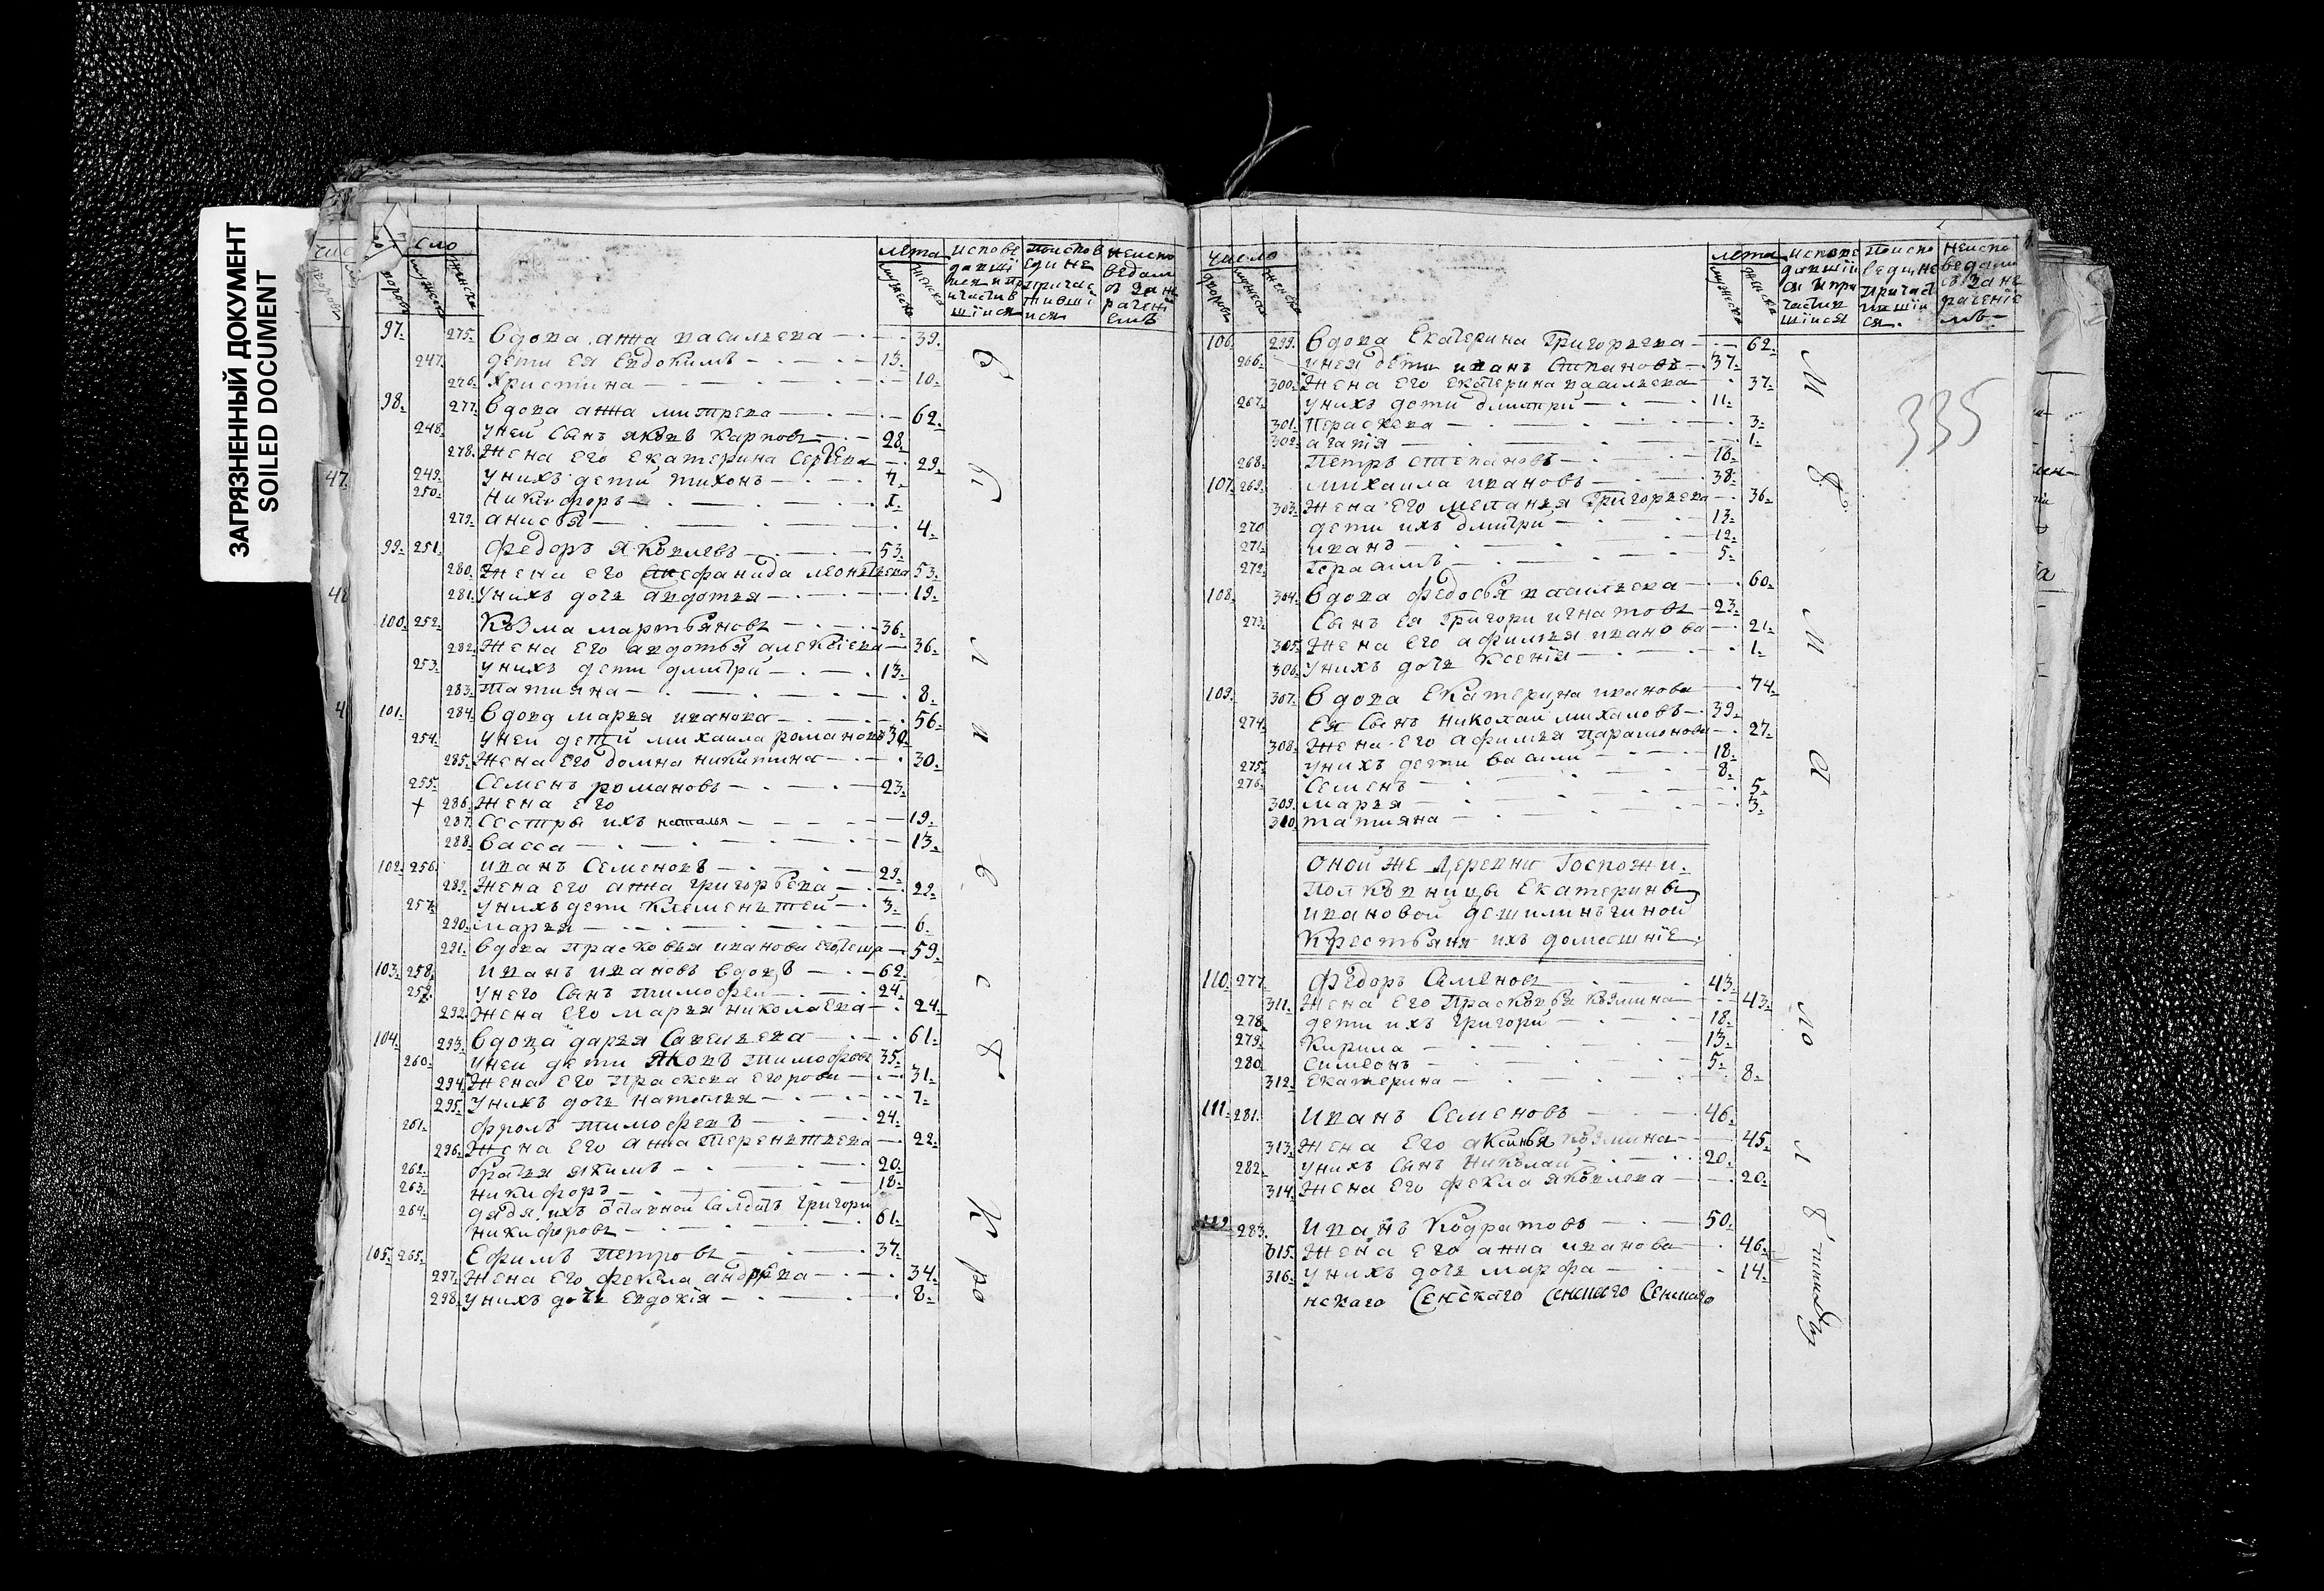 ЗАГРЯЗНЕННЫЙ ДОКУМЕНТ
SOILED DOCUMENT
сло
лета
97. 275. вдова анна васильева 39.
247. дети ея евдокимъ 13.
276. христина 10.
98. 277. вдова анна митрева 62.
248. у ней сынъ яковъ карповъ 28.
278. жена его екатерина 29.
249. у нихъ дети тихонъ 7.
250. никифоръ 1.
279. анисья 4.
99. 251. федоръ яковлевъ 53.
280. жена его стефанида 53.
281. у нихъ дочь авдотья 19.
100. 252. козма мартьяновъ 36.
282. жена его авдотья алексіева 36.
253. у нихъ дети дмитри 13.
283. татияна 8.
101. 284. вдова марья иванова 56.
254. у ней дети михаила романовъ 30.
285. жена его домна никитина 30.
255. семенъ романовъ 23.
+ 286. жена его
287. сестры ихъ наталья 19.
288. васса 13.
102. 256. иванъ семеновъ 29.
289. жена его анна григорьева 29.
257. у нихъ дети клеменьтей 3.
290. марья 6.
291. вдова прасковья иванова его теща 59.
103. 258. иванъ ивановъ вдовъ 62.
259. у него сынъ тимофей 24.
292. жена его марья николаева 24.
104. 293. вдова дарья савельева 61.
260. у ней дети яковъ тимофеевъ 35.
294. жена его праскева егорова 31.
295. у нихъ дочь наталья 7.
261. фролъ тимофеевъ 24.
296. жена его анна терентьева 22.
262. братья якимъ 20.
263. никифоръ 18.
264. дядя ихъ салдатъ григори
никифоровъ 61.
105. 265. Ефимъ петровъ 37.
297. жена его фекла андреева 34.
298. у нихъ дочь евдокія 8.
число
лета
335
106. 299. вдова екатерина григорьева 62.
266. у нея дети иванъ степановъ 37.
300. жена его екатерина васильева 37.
267. у нихъ дети дмитри 11.
301. пераскева 3.
302. агапія 1.
268. петръ степановъ 16.
107. 269. михаила ивановъ 38.
303. жена его меланья григорьева 36.
270. дети ихъ дмитри 13.
271. иванъ 12.
272. герасимъ 5.
108. 304. вдова федосья васильева 60.
273. сынъ ея григори игнатовъ 23.
305. жена его афимья иванова 21.
306. у нихъ дочь ксенія 1.
109. 307. вдова екатерина иванова 74.
274. ея сынъ николаи михаловъ 39.
308. жена его афимья парамонова 27.
275. у нихъ дети васили 18.
276. семенъ 8.
309. марья 5.
310. татияна 3.
оной же деревни госпожи
полковницы екатерины
ивановой
крестьяня ихъ домосшніе
110. 277. федоръ семеновъ 43.
311. жена его прасковья козмина 43.
278. дети ихъ григори 18.
279. кирила 13.
280. симеонъ 5.
312. екатерина 8.
111. 281. иванъ семеновъ 46.
313. жена его аксинья козмина 45.
282. у нихъ сынъ николаи 20.
314. жена его фекла яковлева 20.
112. 283. иванъ кодратовъ 50.
315. жена его анна иванова 46.
316. у нихъ дочь марфа 14.
нскаго Сенскаго Сенскаго Сенскаго